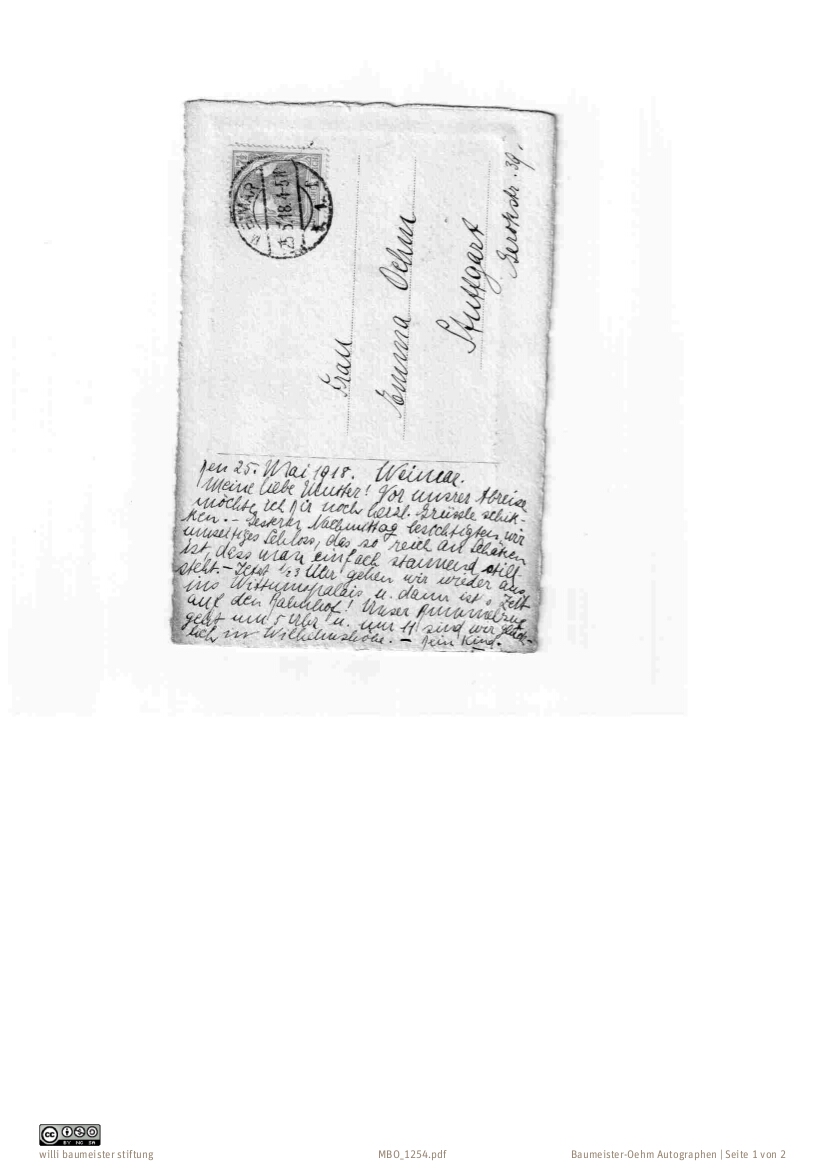 WEIMAR
25.5.18.4-5N
Frau
Emma Oehm
Stuttgart
Gerokstr. 39.
Den 25. Mai 1918. Weimar.
Meine liebe Mutter! Vor unsrer Abreise
möchte ich Dir noch herzl. Grüssle schik-
ken. – Gestern Nachmittag besichtigten wir
umseitiges Schloss, das so reich an Schätzen
ist, dass man einfach staunend still
steht. – Jetzt 1/2 3 Uhr gehen wir wieder
ins Wittumspalais u. dann ist's Zeit
auf den Bahnhof! Unser
geht um 5 Uhr u. um 11 sind wir glück-
lich in Wilhelmshöhe. – Dein Kind.
CC BY NC SA
willi baumeister stiftung
MBO_1254.pdf
Baumeister-Oehm Autographen | Seite 1 von 2